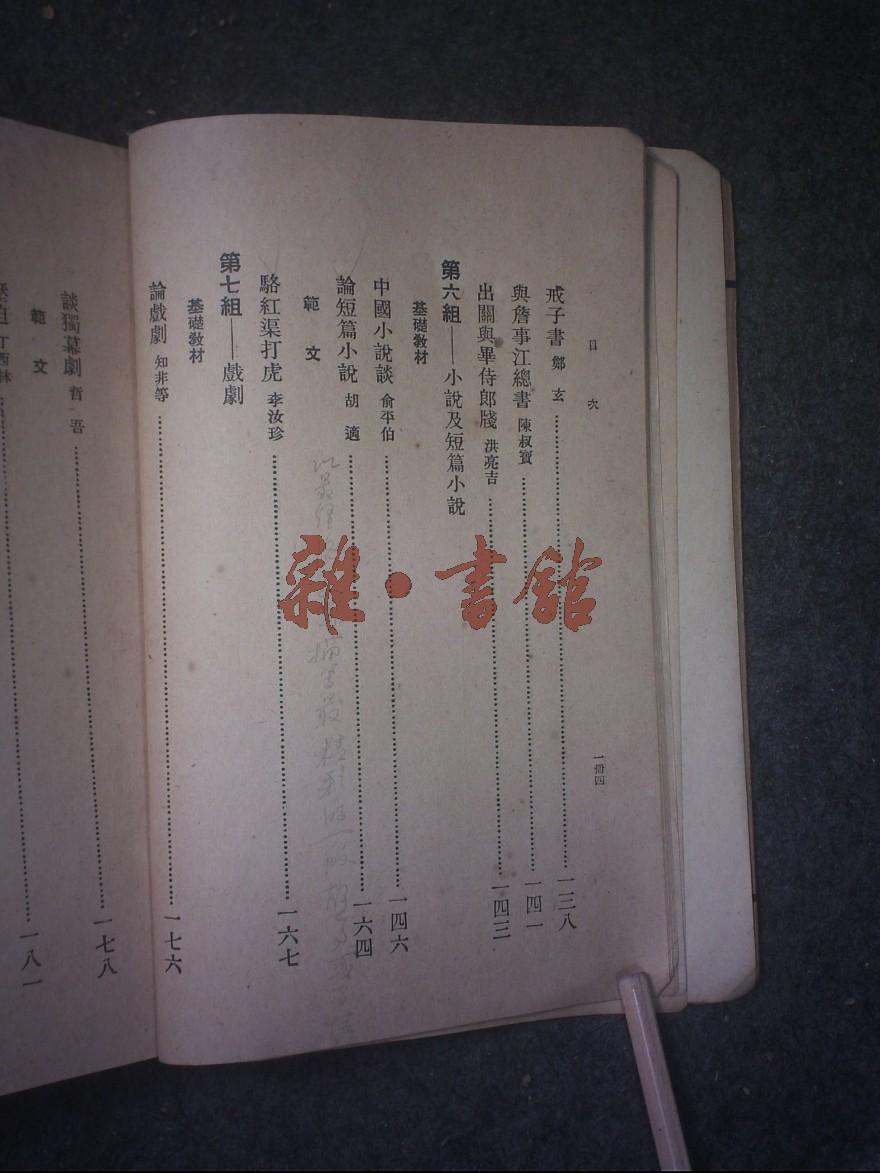 目次
一冊四
戒子書 鄭玄……一三八
與詹事江總書 陳叔寶……一四一
出關與畢侍郎牋 洪亮吉……一四三
第六組——小說及短篇小說
基礎教材
中國小說談 俞平伯……一四六
論短篇小說 胡適……一六四
範文
駱紅渠打虎 李汝珍……一六七
第七組——戲劇
基礎教材
論戲劇 知非等……一七六
談獨幕劇 哲吾……一七八
範文
丁西林……一八一
以最經
描寫最精彩的一段
雜·書館